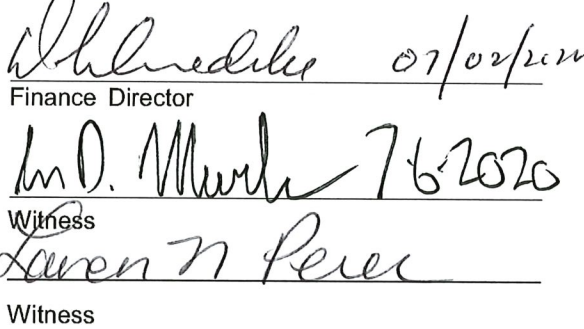 07/02/2020
Finance Director
D. 7 6 2020
Witness
Lauren N Perez
Witness